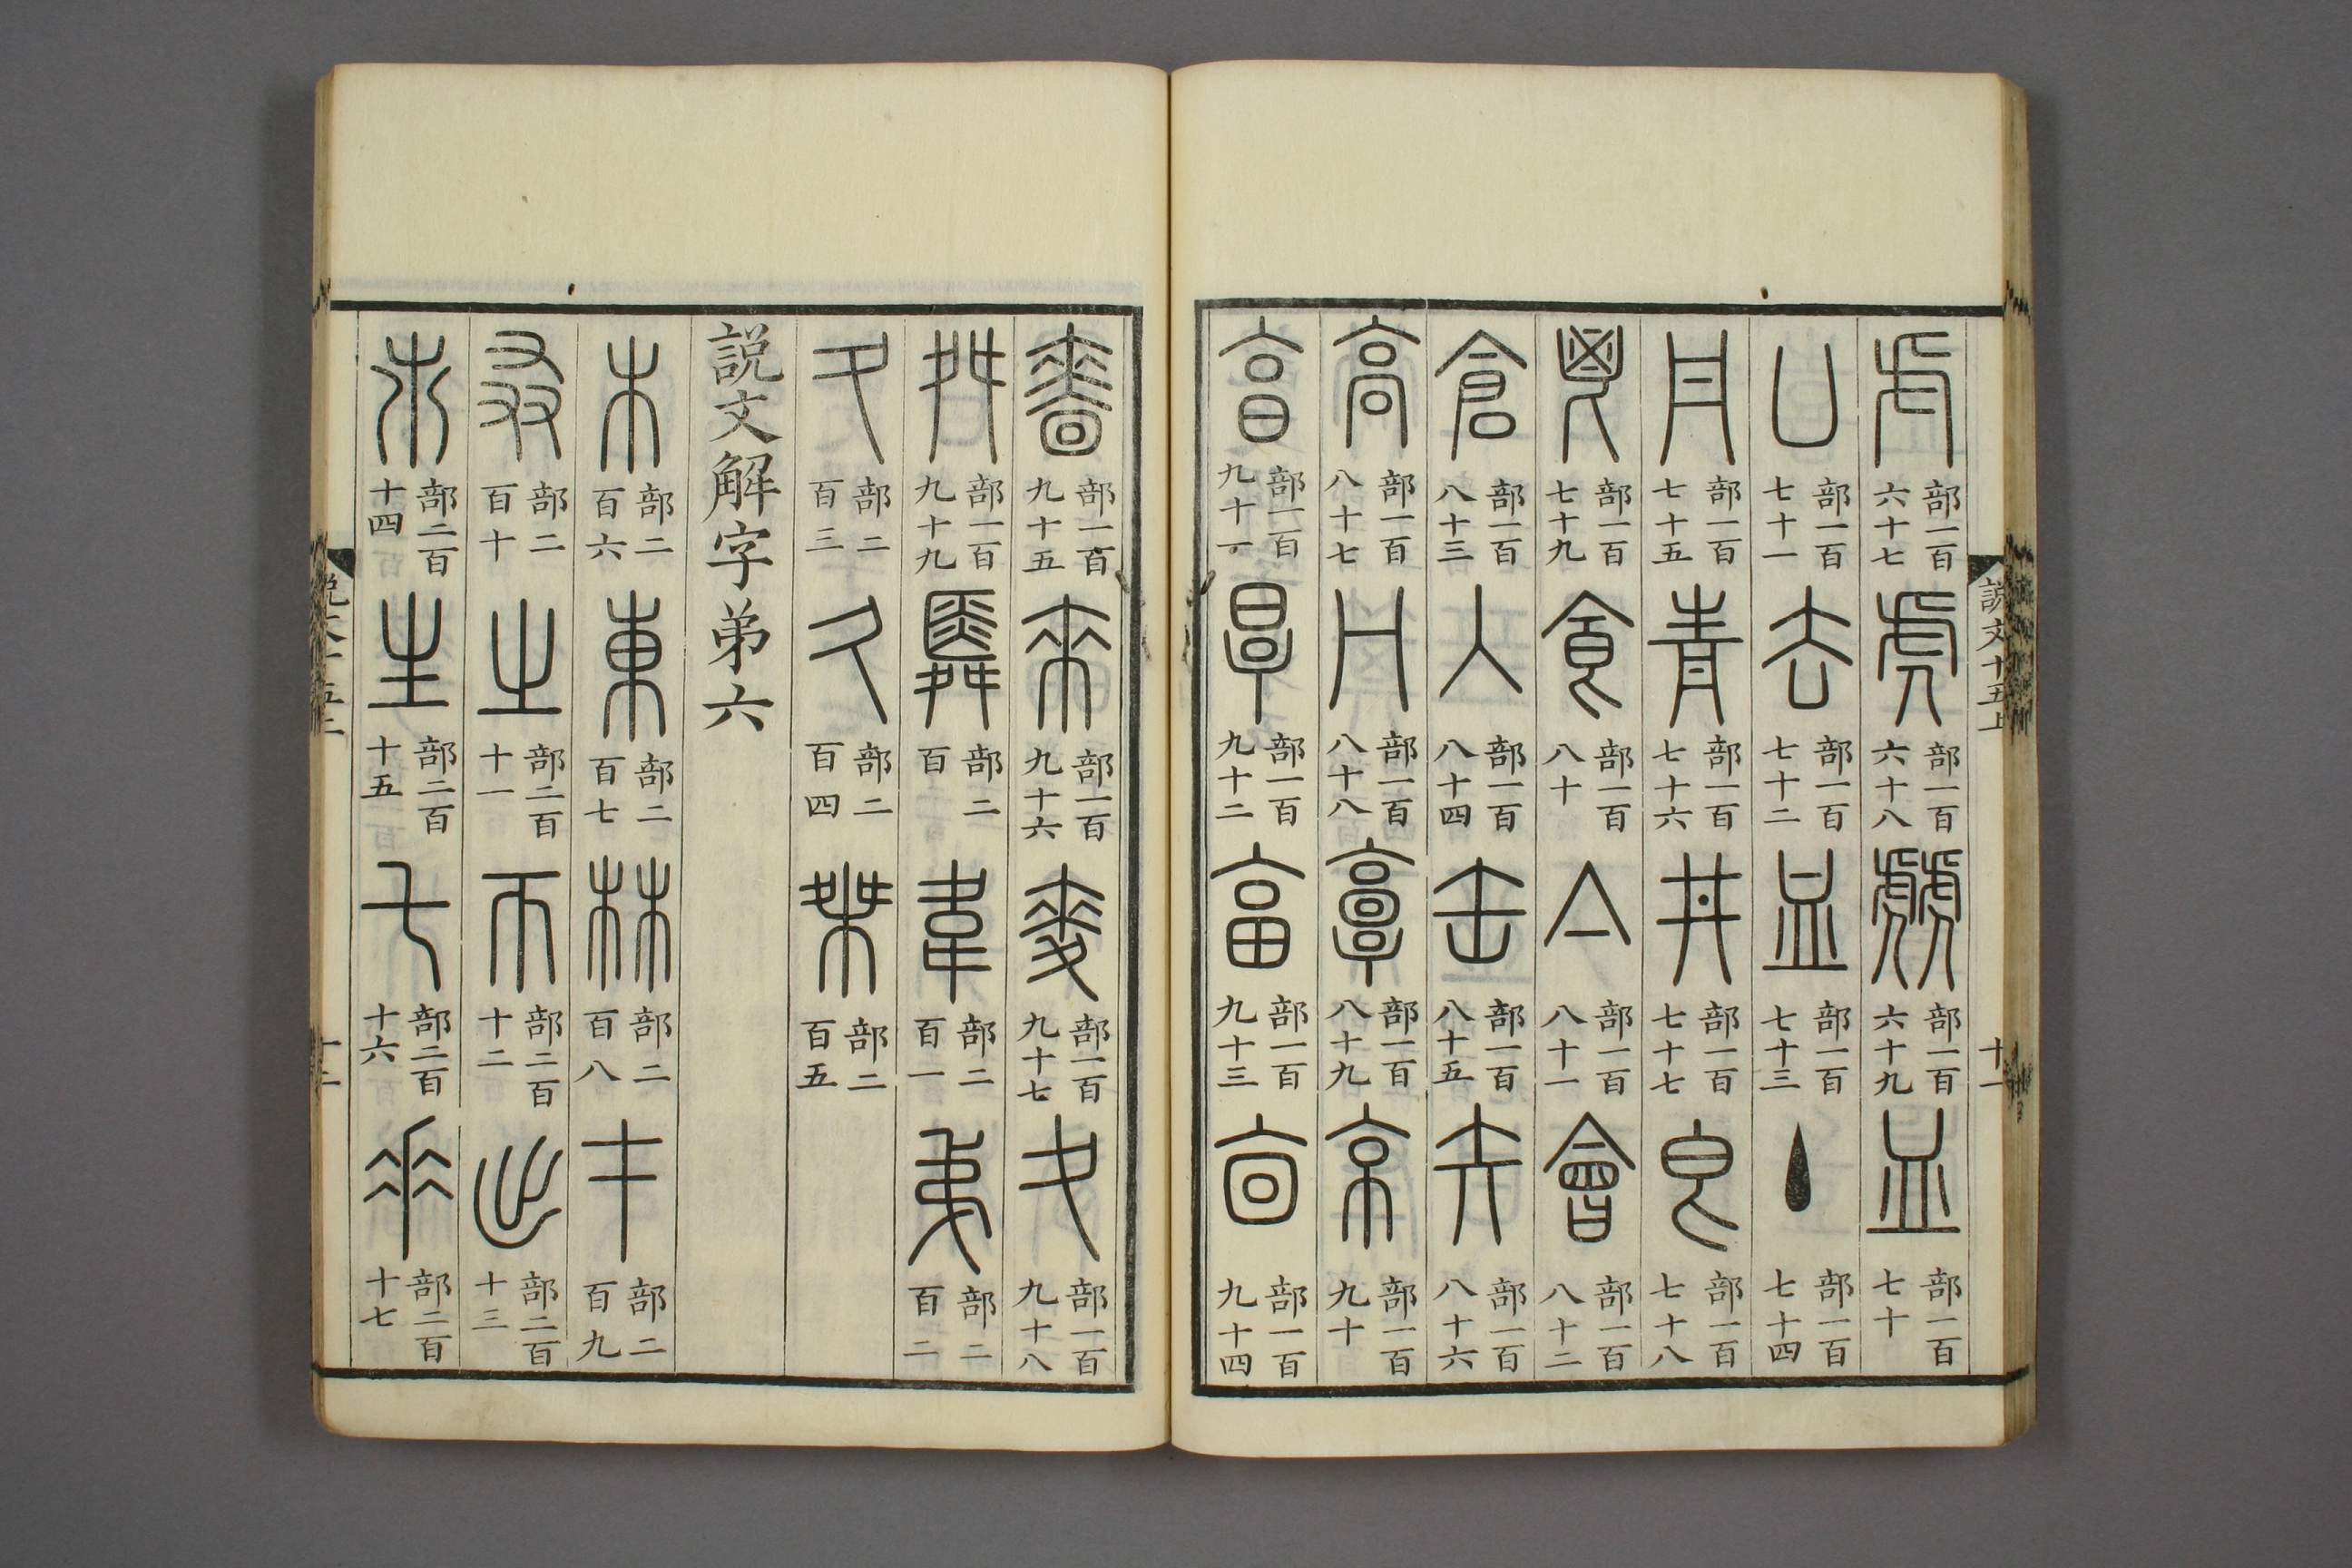 説文十五上 十一
虍部一百六十七虎部一百六十八虤部一百六十九皿部一百七十
凵部一百七十一去部一百七十二血部一百七十三丶部一百七十四
丹部一百七十五青部一百七十六井部一百七十七皀部一百七十八
鬯部一百七十九食部一百八十亼部一百八十一會部一百八十二
倉部一百八十三入部一百八十四缶部一百八十五矢部一百八十六
高部一百八十七冂部一百八十八𩫏部一百八十九京部一百九十
亯部一百九十一㫗部一百九十二畗部一百九十三㐭部一百九十四
嗇部一百九十五來部一百九十六麥部一百九十七夊部一百九十八
舛部一百九十九䑞部二百韋部二百一弟部二百二
夂部二百三久部二百四桀部二百五
説文解字弟六
木部二百六東部二百七林部二百八才部二百九
叒部二百十之部二百十一帀部二百十二出部二百十三
𣎵部二百十四生部二百十五乇部二百十六𠂹部二百十七